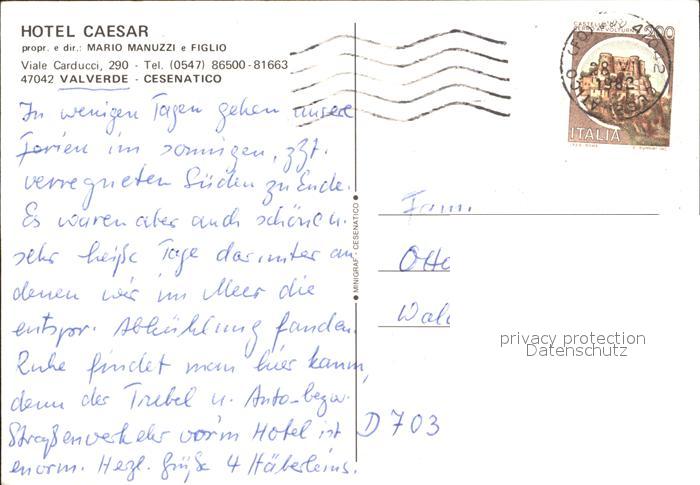 HOTEL CAESAR
propr. e dir.: MARIO MANUZZI e FIGLIO
Viale Carducci, 290 - Tel. (0547) 86500-81663
47042 VALVERDE - CESENATICO
In wenigen Tagen gehen unsere
Ferien im sonnigen, zzt.
verregneten Süden zu Ende.
Es waren aber auch schöne u.
sehr heiße Tage darunter an
denen wir im Meer die
entspr. Abkühlung fanden.
Ruhe findet man hier kaum,
denn der Trubel u. Auto-bezw.
Straßenverkehr vor'm Hotel ist
enorm. Hezl. Grüße 4 Häberleins.
MINIGRAF - CESENATICO
200
ITALIA
1982
Fam.
Otto
Wal
D 703
privacy protection
Datenschutz